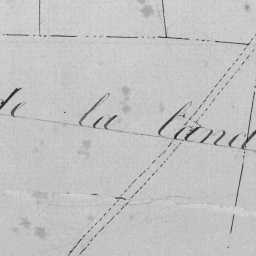 de la land